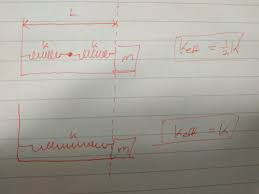 L
k k m K_eff = ½ K
k m K_eff = K